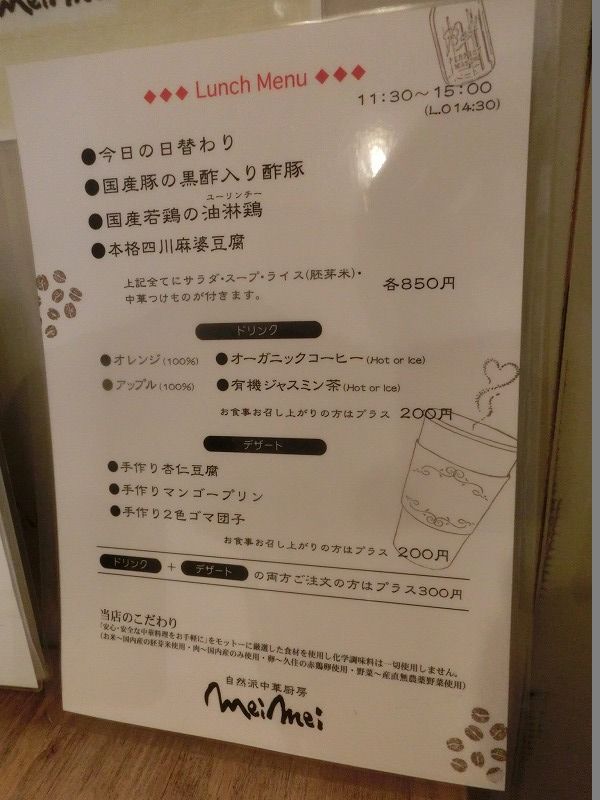 ◆◆◆ Lunch Menu ◆◆◆
11:30～15:00
(L.O14:30)
●今日の日替わり
●国産豚の黒酢入り酢豚
ユーリンチー
●国産若鶏の油淋鶏
●本格四川麻婆豆腐
上記全てにサラダ・スープ・ライス(胚芽米)・
中華つけものが付きます。
各850円
ドリンク
●オレンジ(100%) ●オーガニックコーヒー(Hot or Ice)
●アップル(100%) ●有機ジャスミン茶(Hot or Ice)
お食事お召し上がりの方はプラス 200円
デザート
●手作り杏仁豆腐
●手作りマンゴープリン
●手作り2色ゴマ団子
お食事お召し上がりの方はプラス 200円
ドリンク + デザート の両方ご注文の方はプラス300円
当店のこだわり
「安心・安全な中華料理をお手軽に」をモットーに厳選した食材を使用し化学調味料は一切使用しません。
(お米～国内産の胚芽米使用・肉～国内産のみ使用・卵～久住の赤鶏卵使用・野菜～産直無農薬野菜使用)
自然派中華厨房
MeiMei